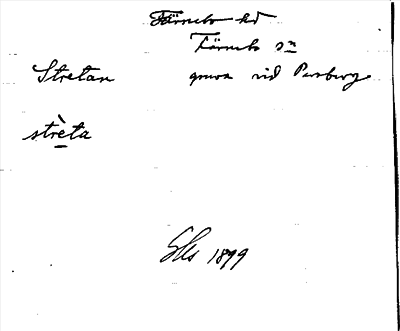 Färnebo hd
Färnebo sn
Stretan gruva vid Persberg
strèta
1899